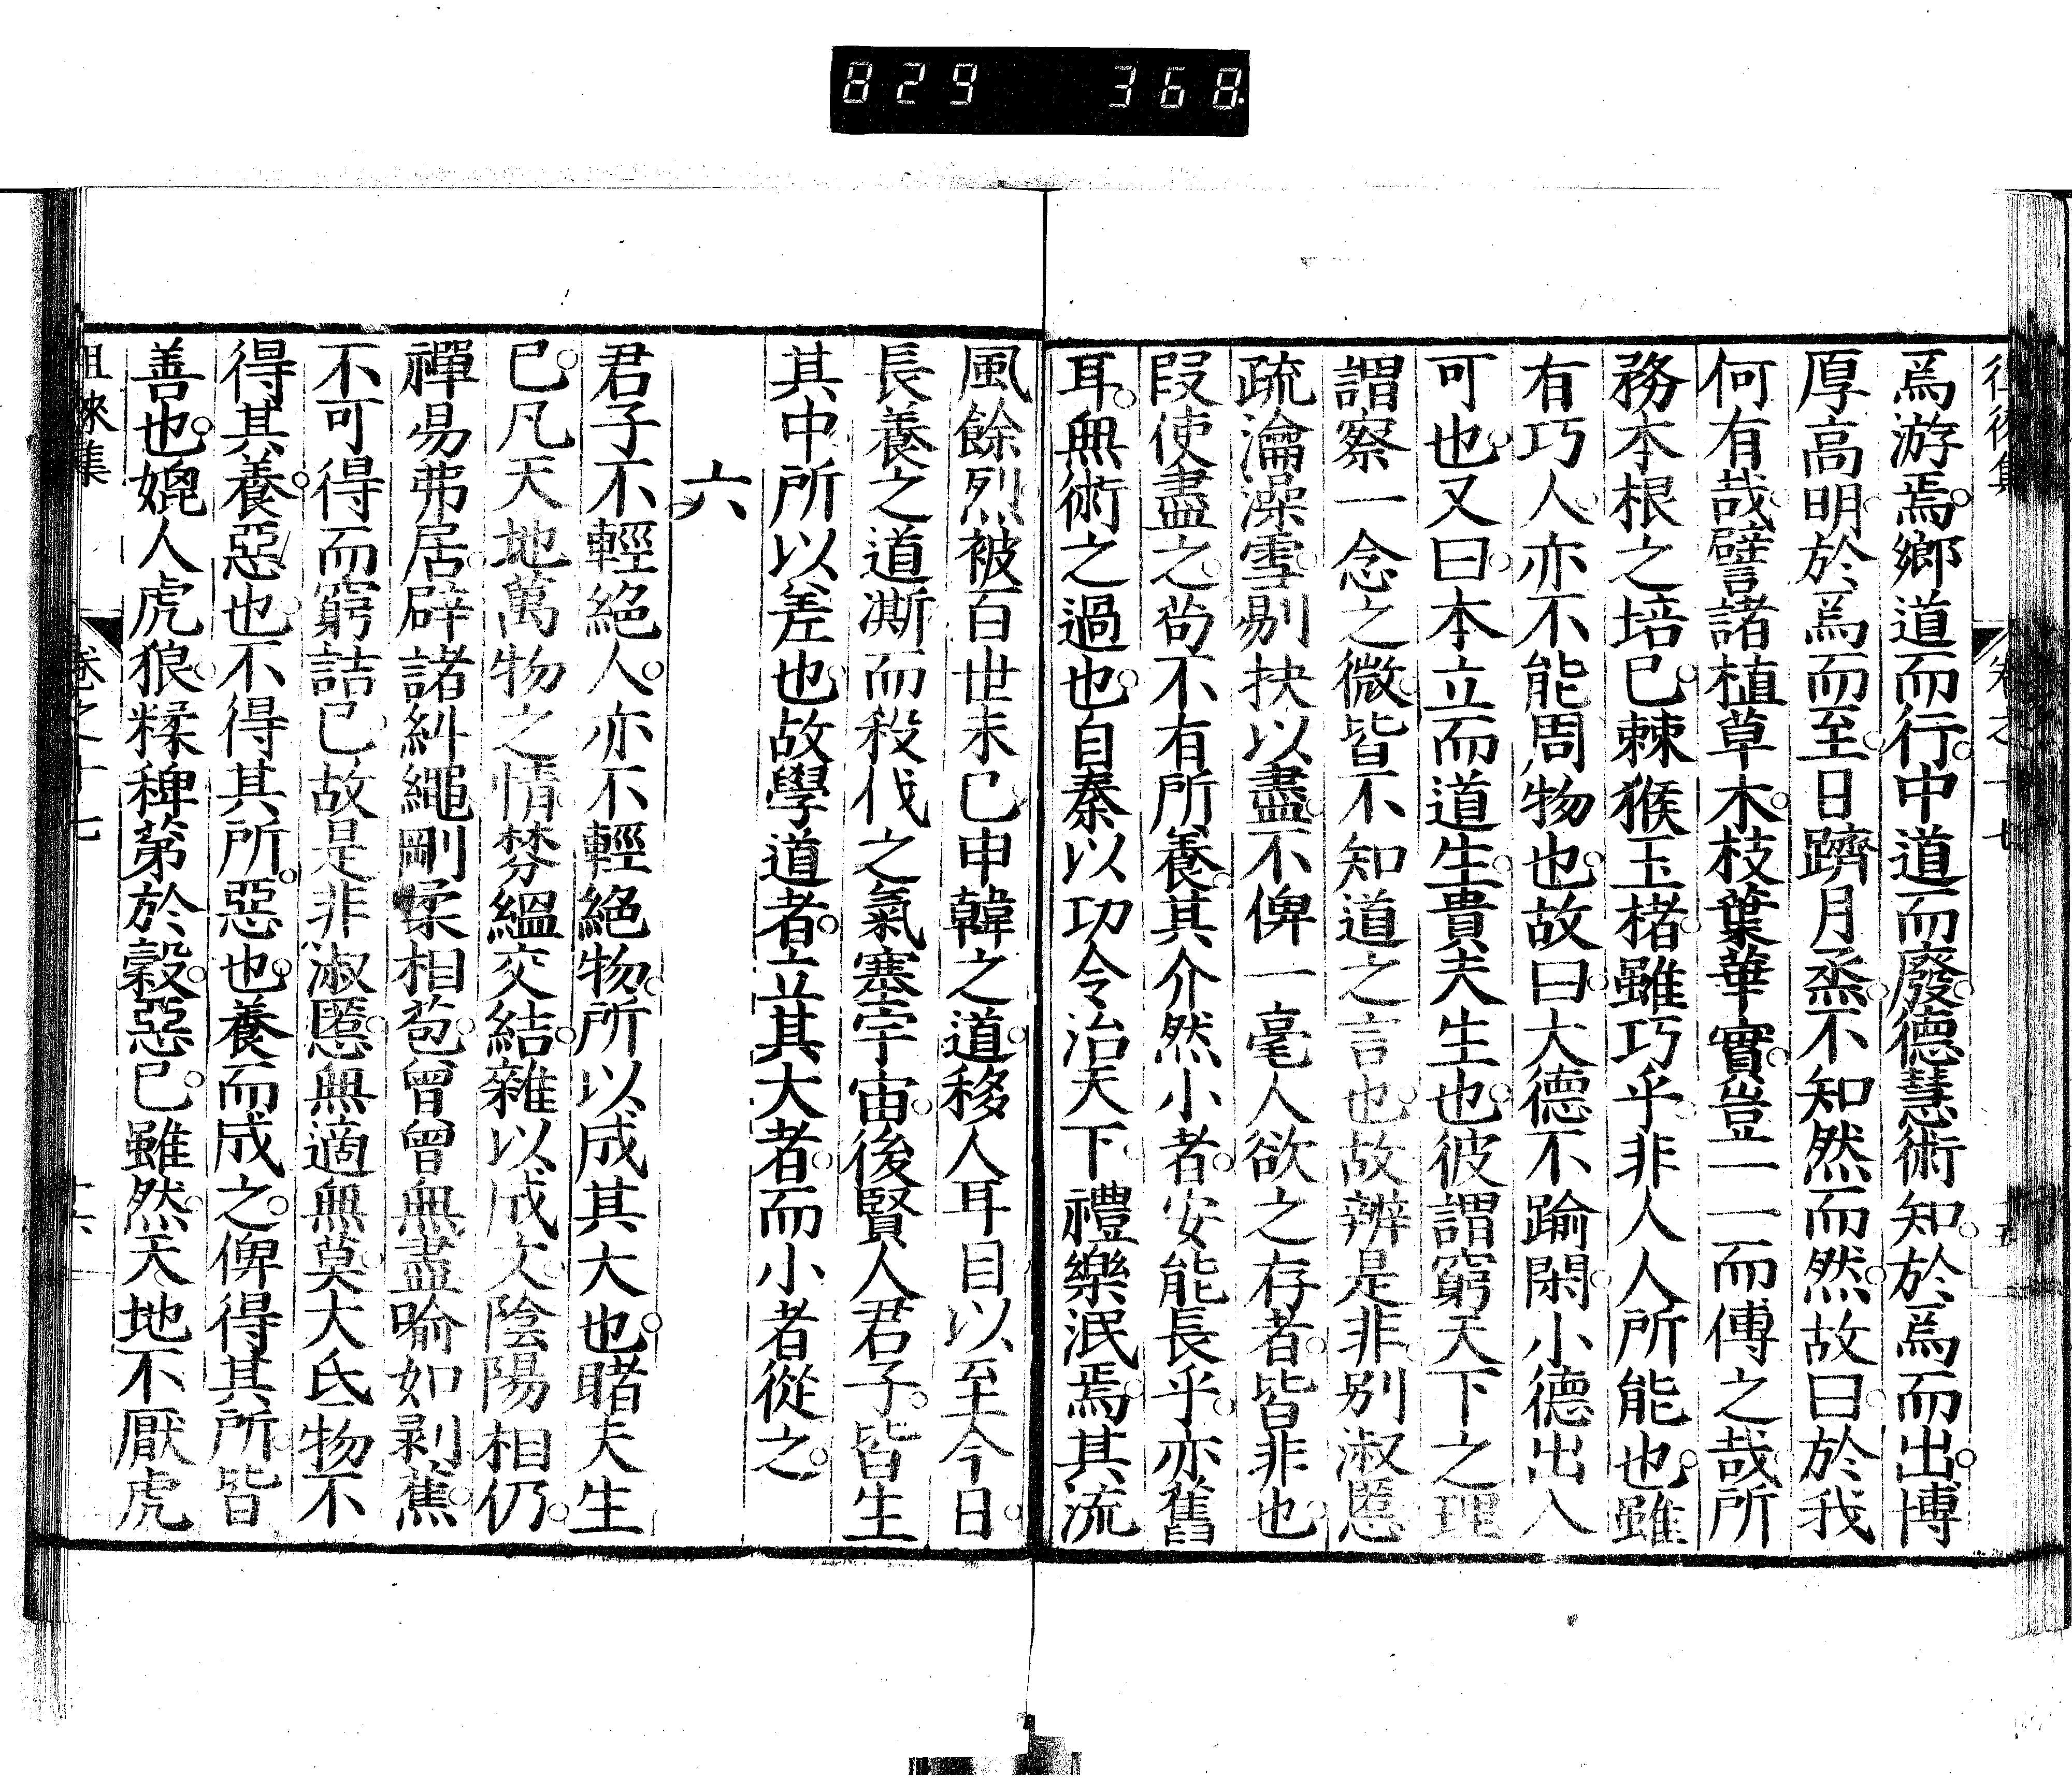 829 368
焉游焉。鄉道而行。中道而廢。德慧術知。於焉而出。博
厚高明。於焉而至。日躋月烝。不知然而然。故曰。於我
何有哉。譬諸植草木。枝葉華實。豈一一而傅之哉。所
務本根之培已。棘猴玉楮。雖巧乎。非人人所能也。雖
有巧人。亦不能周物也。故曰。大德不踰閑。小德出入
可也。又曰。本立而道生。貴夫生也。彼謂窮天下之理
謂察一念之微。皆不知道之言也。故辨是非。別淑慝
疏瀹澡雪。剔抉以盡。不俾一毫人欲之存者。皆非也。
段使盡之。苟不有所養。其介然小者。安能長乎。亦舊
耳。無術之過也。自秦以功令治天下。禮樂泯焉。其流
風餘烈。被百世未已。申韓之道。移人耳目。以至今日。
長養之道澌。而殺伐之氣塞宇宙。後賢人君子。皆生
其中。所以差也。故學道者。立其大者。而小者從之。
六
君子不輕絕人。亦不輕絕物。所以成其大也。睹夫生
已。凡天地萬物之情。棼縕交結。雜以成文。陰陽相仍。
禪易弗居。辟諸糾繩。剛柔相苞。曾曾無盡。喻如剥蕉。
不可得而窮詰已。故是非淑慝。無適無莫。大氐物不
得其養。惡也。不得其所。惡也。養而成之。俾得其所。皆
善也。媲人虎狼。糅稗苐於穀。惡已。雖然。天地不厭虎
徂徠集 卷之十七